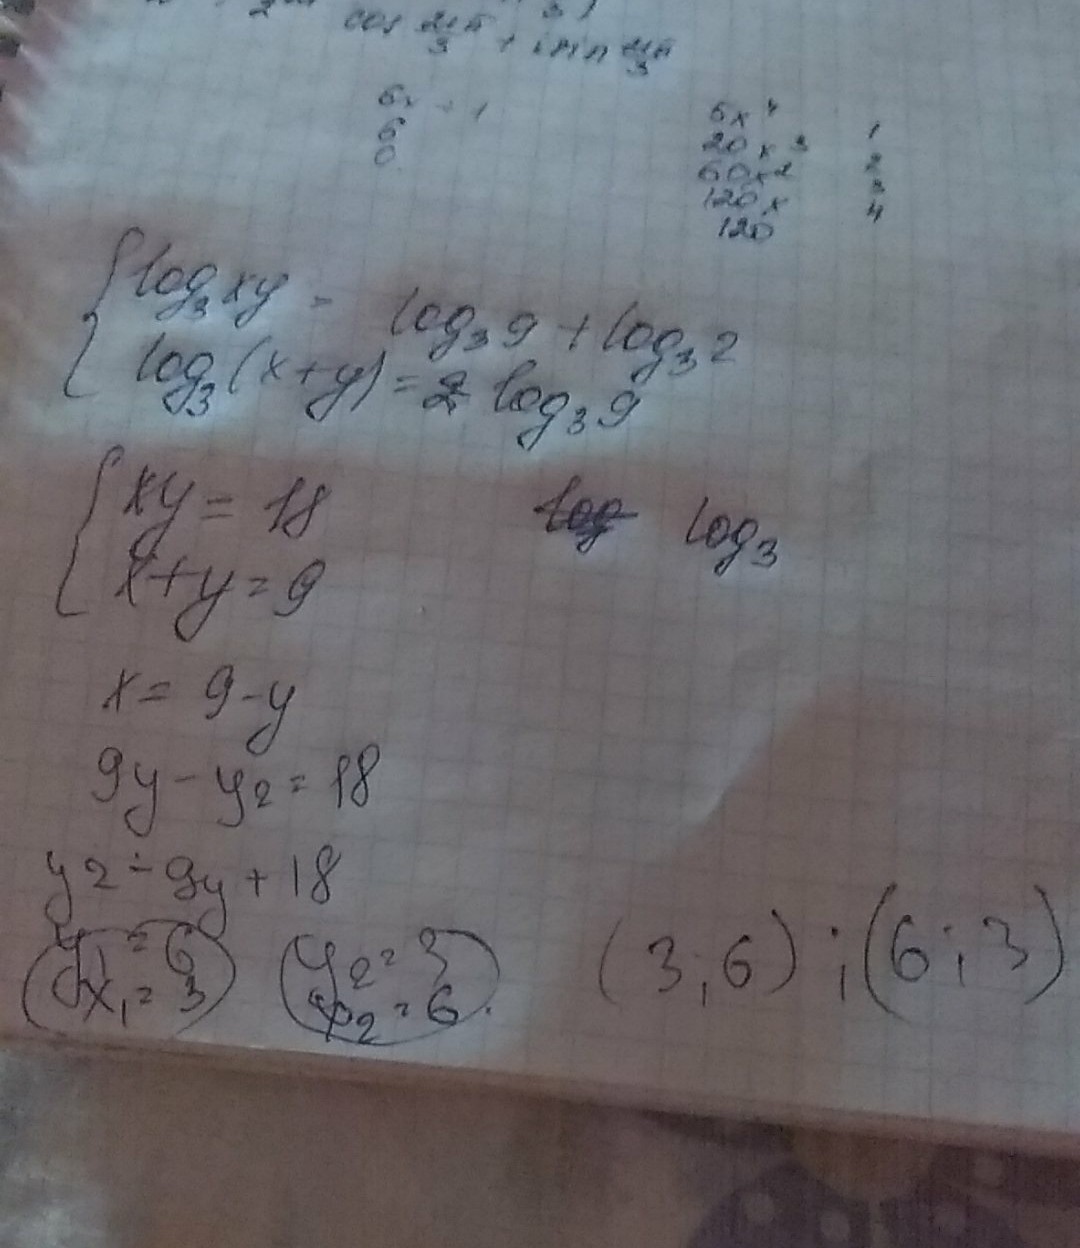 cos 2π/3 + i sin 2π/3
6x + 1
6
0
5x⁴ 1
20x³ 2
60x² 3
120x 4
120
{ log₃ xy = log₃ 9 + log₃ 2
log₃ (x+y) = 2 log₃ 9
{ xy = 18
x+y = 9
log log₃
x = 9-y
9y - y2 = 18
y2 - 9y + 18
y₁ = 6
x₁ = 3
y₂ = 3
x₂ = 6.
(3;6) ; (6;3)